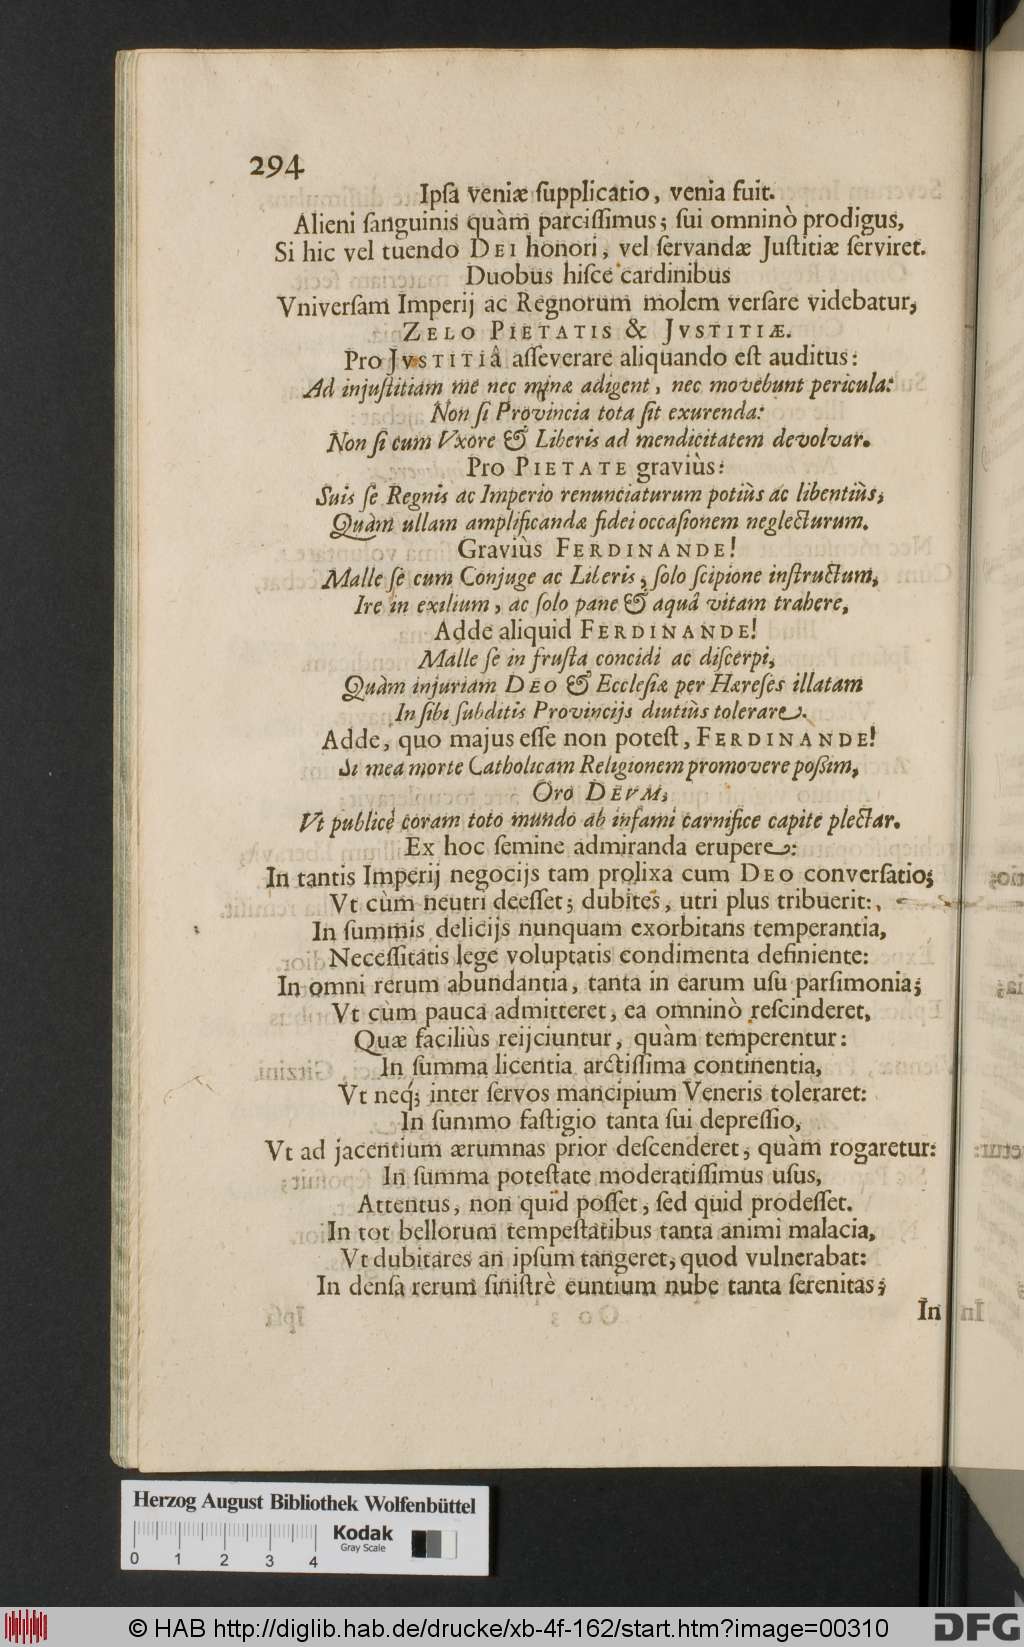 294
Ipſa veniæ ſupplicatio, venia fuit.
Alieni ſanguinis quàm parciſſimus; ſui omninò prodigus,
Si hic vel tuendo DEI honori, vel ſervandæ Juſtitiæ ſerviret.
Duobus hiſce cardinibus
Vniverſam Imperij ac Regnorum molem verſare videbatur,
ZELO PIETATIS & JVSTITIÆ.
Pro JVSTITIÂ aſſeverare aliquando eſt auditus:
Ad injuſtitiam me nec minæ adigent, nec movebunt pericula:
Non ſi Provincia tota ſit exurenda:
Non ſi cum Vxore & Liberis ad mendicitatem devolvar.
Pro PIETATE graviùs:
Suis ſe Regnis ac Imperio renunciaturum potiùs ac libentiùs,
Quàm ullam amplificandæ fidei occaſionem neglecturum.
Graviùs FERDINANDE!
Malle ſe cum Conjuge ac Liberis, ſolo ſcipione inſtructum,
Ire in exilium, ac ſolo pane & aquâ vitam trahere,
Adde aliquid FERDINANDE!
Malle ſe in fruſta concidi ac diſcerpi,
Quàm injuriam DEO & Eccleſiæ per Hæreſes illatam
In ſibi ſubditis Provincijs diutiùs tolerare.
Adde, quo majus eſſe non poteſt, FERDINANDE!
Si mea morte Catholicam Religionem promovere poßim,
Oro DEVM,
Vt publicè coram toto mundo ab infami carnifice capite plectar.
Ex hoc ſemine admiranda erupere:
In tantis Imperij negocijs tam prolixa cum DEO converſatio;
Vt cùm neutri deeſſet; dubites, utri plus tribuerit:
In ſummis delicijs nunquam exorbitans temperantia,
Neceſſitatis lege voluptatis condimenta definiente:
In omni rerum abundantia, tanta in earum uſu parſimonia;
Vt cùm pauca admitteret, ea omninò reſcinderet,
Quæ faciliùs reijciuntur, quàm temperentur:
In ſumma licentia arctiſſima continentia,
Vt neq; inter ſervos mancipium Veneris toleraret:
In ſummo faſtigio tanta ſui depreſſio,
Vt ad jacentium ærumnas prior deſcenderet, quàm rogaretur:
In ſumma poteſtate moderatiſſimus uſus,
Attentus, non quid poſſet, ſed quid prodeſſet.
In tot bellorum tempeſtatibus tanta animi malacia,
Vt dubitares an ipſum tangeret, quod vulnerabat:
In denſa rerum ſiniſtrè euntium nube tanta ſerenitas;
In
Herzog August Bibliothek Wolfenbüttel
Kodak
Gray Scale
0 1 2 3 4
© HAB http://diglib.hab.de/drucke/xb-4f-162/start.htm?image=00310
DFG